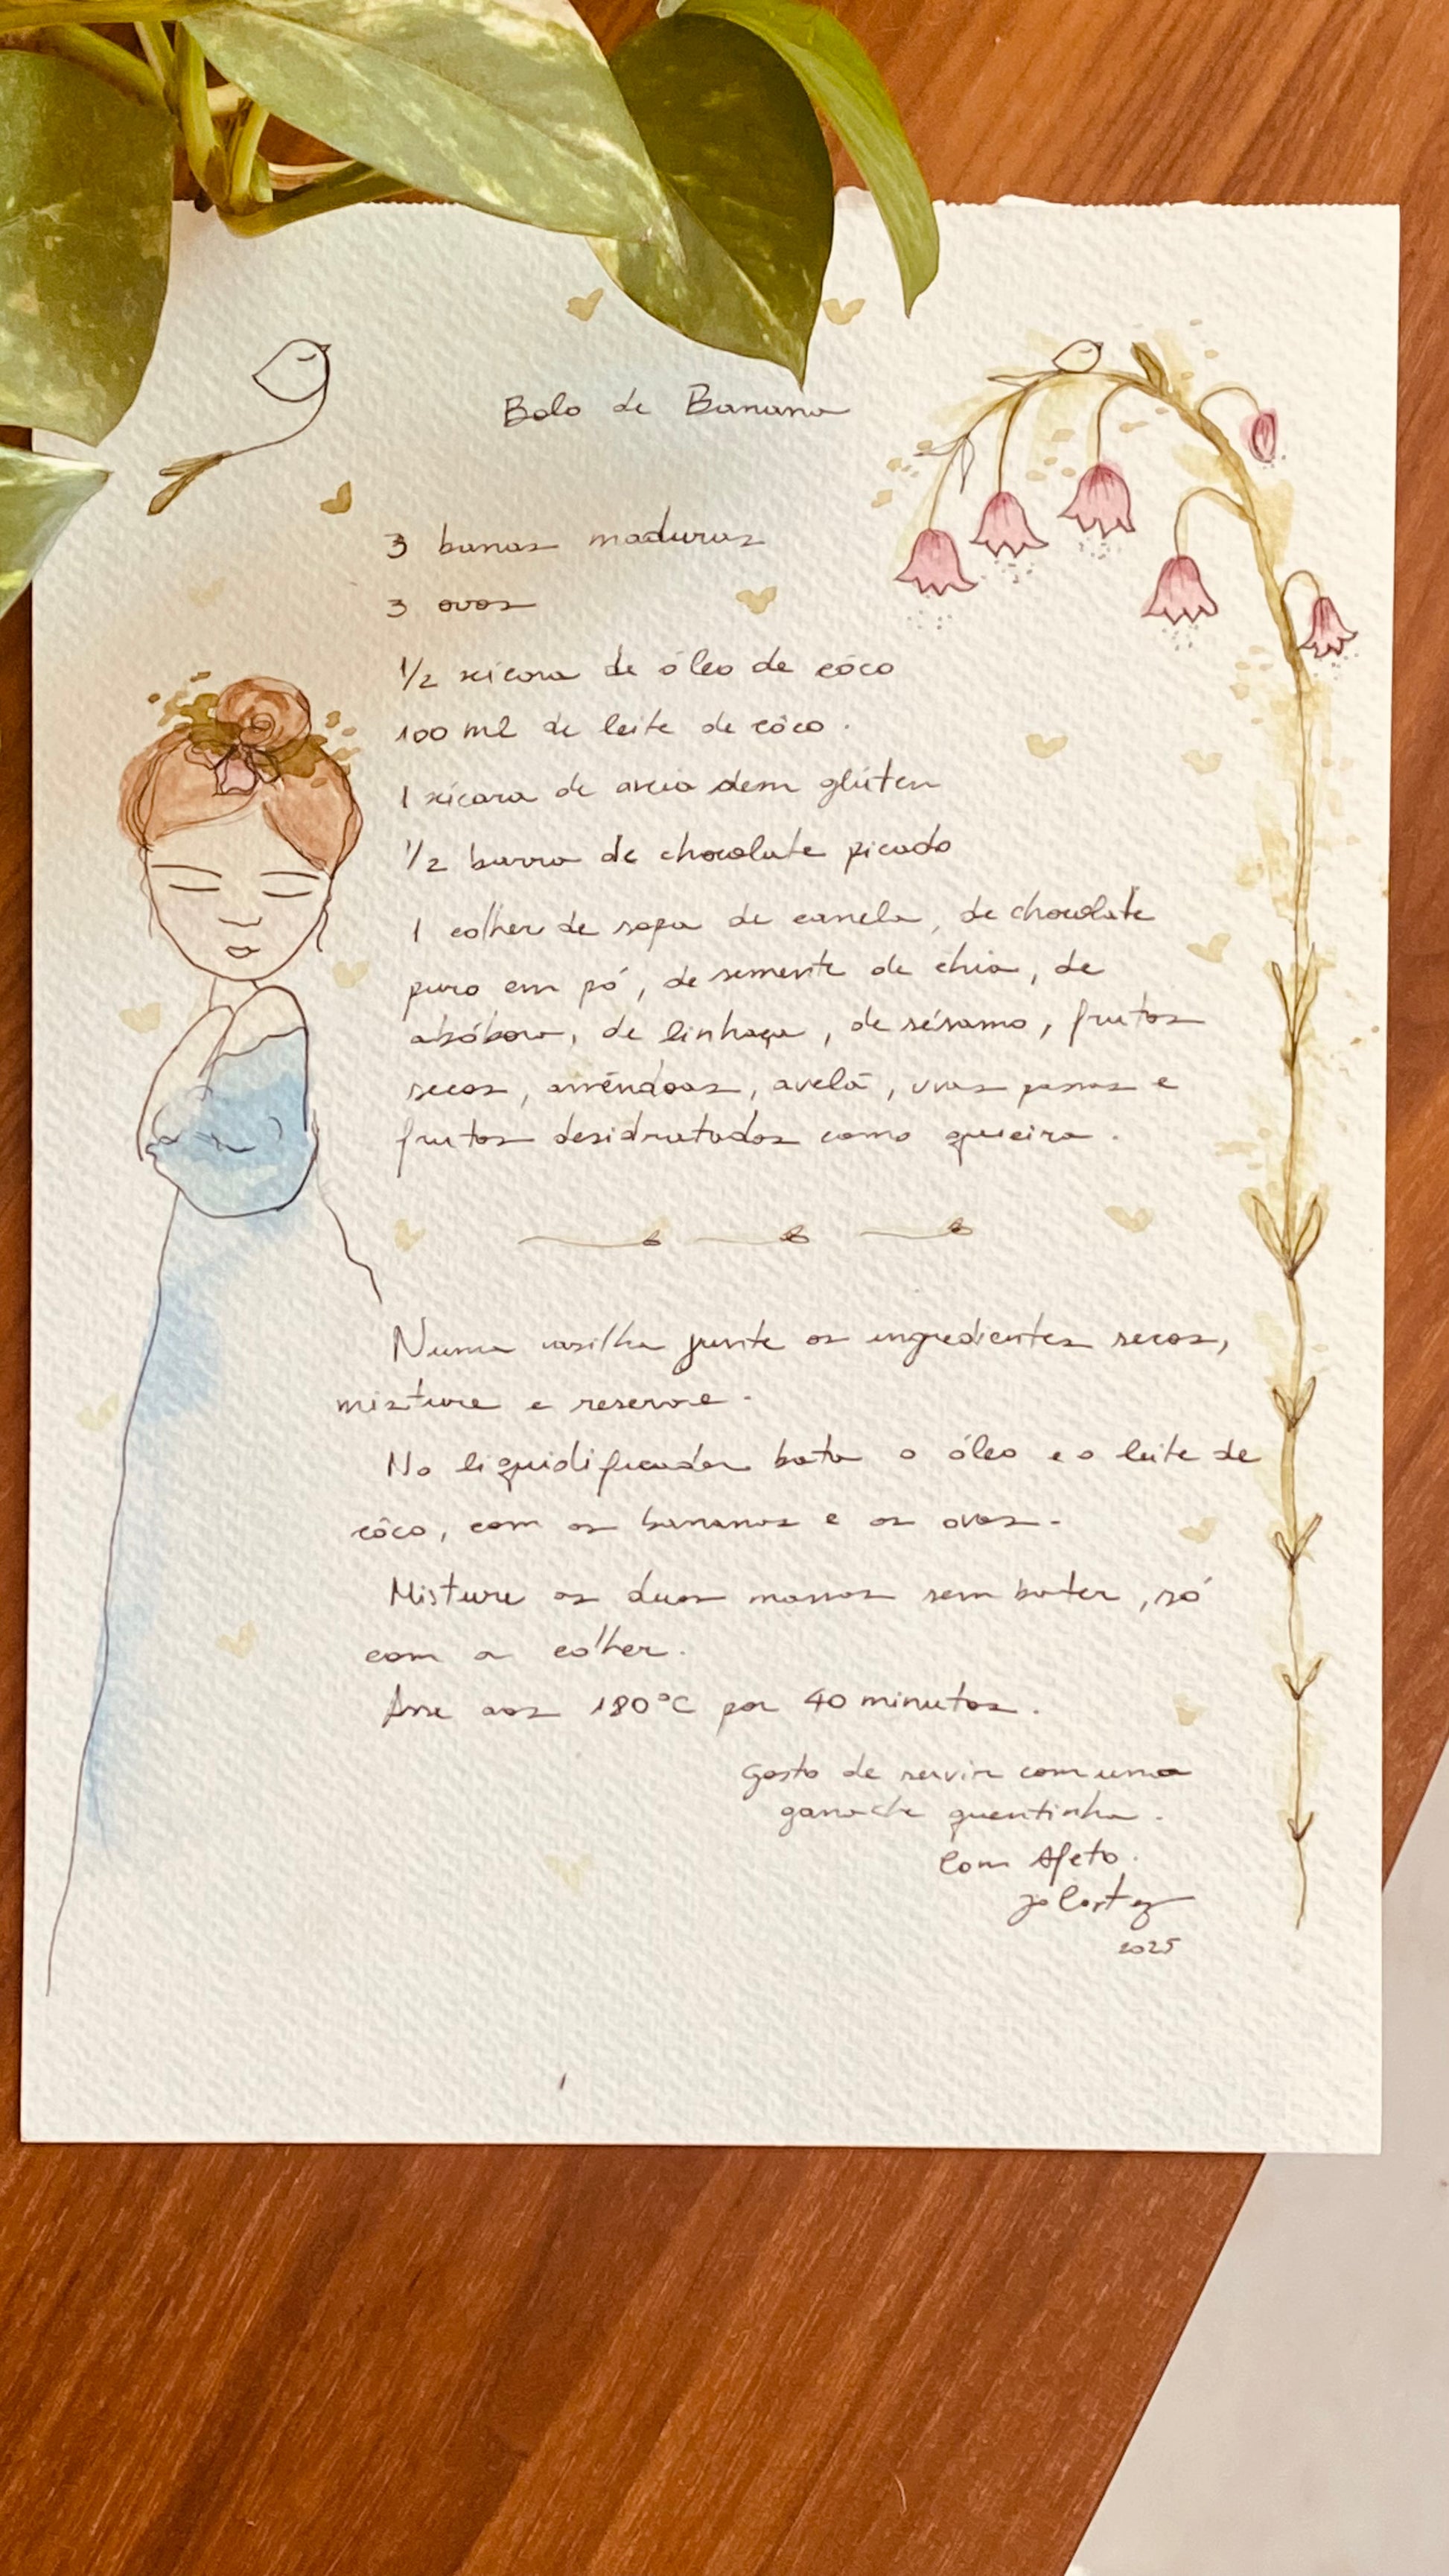 Bolo de Banana
3 banas maduras
3 ovos
1/2 xícara de óleo de côco
100 ml de leite de côco.
1 xícara de aveia sem glúten
1/2 barra de chocolate picado
1 colher de sopa de canela, de chocolate
puro em pó, de semente de chia, de
abóbora, de linhaça, de sésamo, frutos
secos, amêndoas, avelã, uvas passas e
frutos desidratados como
Numa vasilha junte os ingredientes secos,
misture e reserve.
No liquidificador bata o óleo e o leite de
côco, com as bananas e os ovos.
Misture as duas massas sem bater, só
com a colher.
Asse aos 180°C por 40 minutos.
Gosto de servir com uma
ganache quentinha.
Com Afeto.
2025